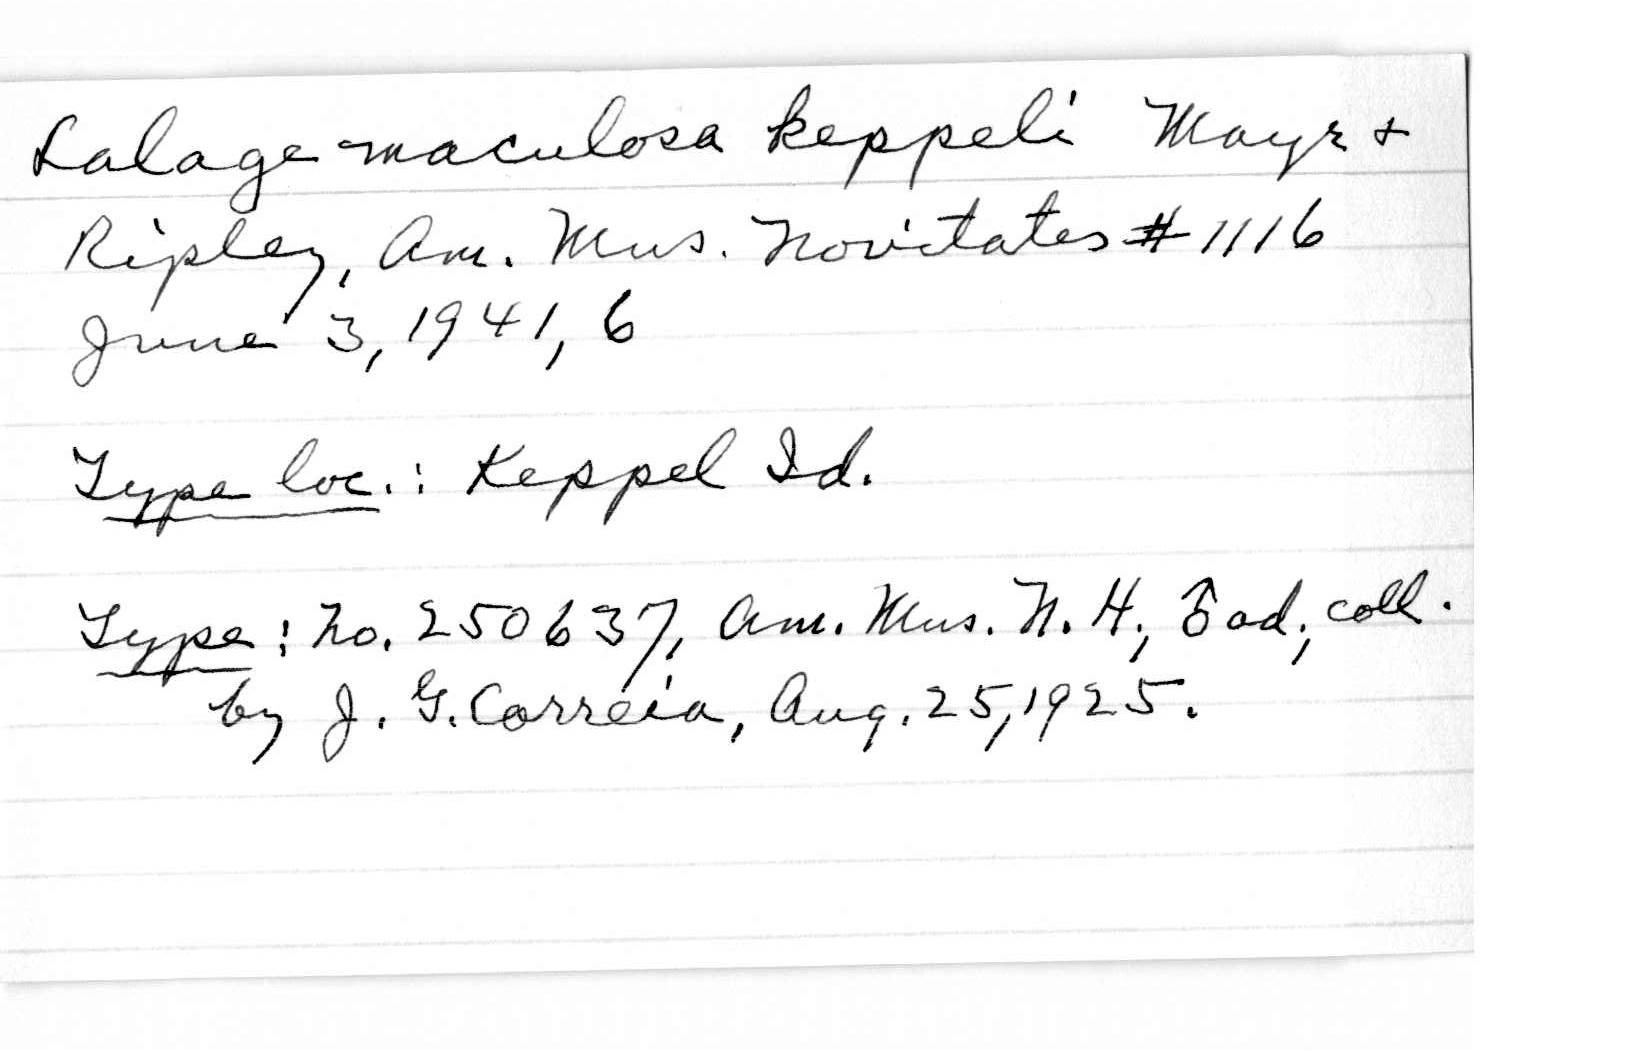 Lalage maculosa keppeli Mayr &
Ripley, Am. Mus. Novitates # 1116
June 3, 1941, 6
Type loc.: Keppel Id.
Type: No. 250637, Am. Mus. N. H., ♂ ad., coll.
by J. G. Correia, Aug. 25, 1925.